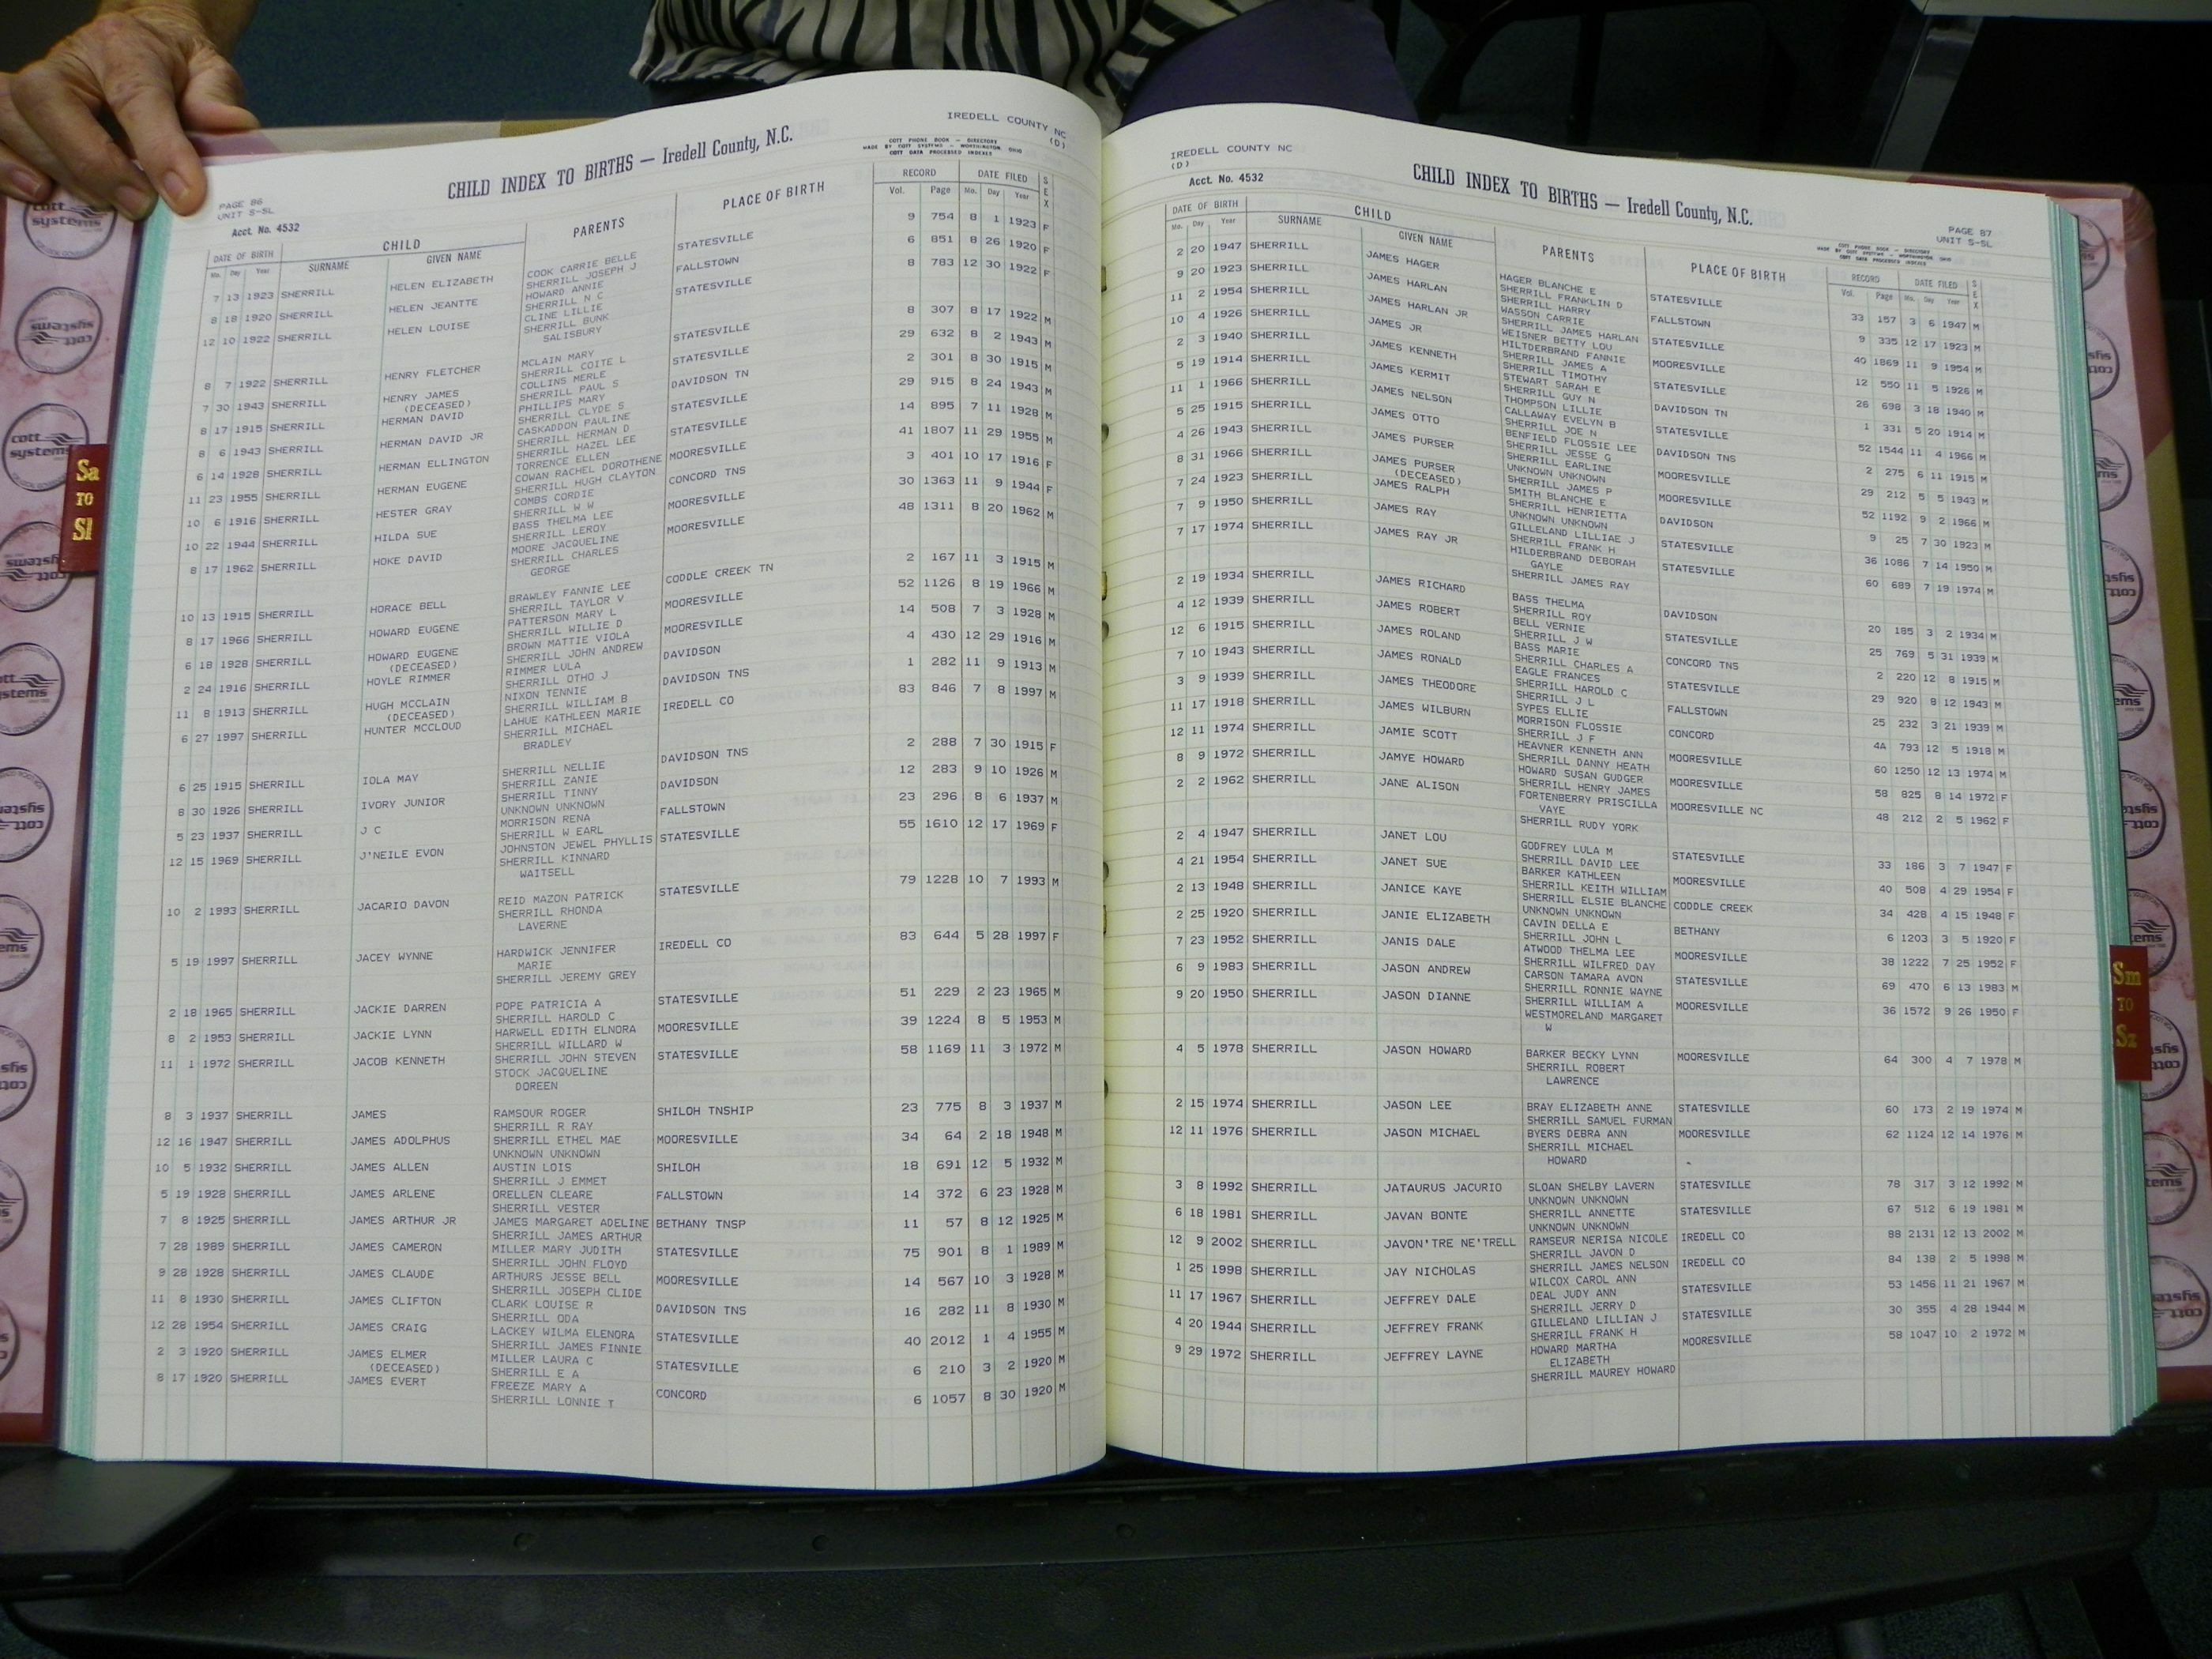 IREDELL COUNTY NC
(D)
COTT PHONE BOOK — DIRECTORY
MADE BY COTT SYSTEMS — WORTHINGTON OHIO
COTT DATA PROCESSED INDEXES
CHILD INDEX TO BIRTHS — Iredell County, N.C.
PAGE 86
UNIT S-SL
Acct. No. 4532
DATE OF BIRTH CHILD PARENTS PLACE OF BIRTH RECORD DATE FILED SEX
Mo. Day Year SURNAME GIVEN NAME Vol. Page Mo. Day Year
7 13 1923 SHERRILL HELEN ELIZABETH COOK CARRIE BELLE STATESVILLE 9 754 8 1 1923 F
SHERRILL JOSEPH J
8 18 1920 SHERRILL HELEN JEANTTE HOWARD ANNIE FALLSTOWN 6 851 8 26 1920 F
SHERRILL N C
12 10 1922 SHERRILL HELEN LOUISE CLINE LILLIE STATESVILLE 8 783 12 30 1922 F
SHERRILL BUNK
SALISBURY
8 7 1922 SHERRILL HENRY FLETCHER MCLAIN MARY STATESVILLE 8 307 8 17 1922 M
SHERRILL COITE L
7 30 1943 SHERRILL HENRY JAMES COLLINS MERLE STATESVILLE 29 632 8 2 1943 M
(DECEASED) SHERRILL PAUL S
8 17 1915 SHERRILL HERMAN DAVID PHILLIPS MARY DAVIDSON TN 2 301 8 30 1915 M
SHERRILL CLYDE S
8 6 1943 SHERRILL HERMAN DAVID JR CASKADDON PAULINE STATESVILLE 29 915 8 24 1943 M
SHERRILL HERMAN D
6 14 1928 SHERRILL HERMAN ELLINGTON SHERRILL HAZEL LEE STATESVILLE 14 895 7 11 1928 M
TORRENCE ELLEN
11 23 1955 SHERRILL HERMAN EUGENE COWAN RACHEL DOROTHENE MOORESVILLE 41 1807 11 29 1955 M
SHERRILL HUGH CLAYTON
10 6 1916 SHERRILL HESTER GRAY COMBS CORDIE CONCORD TNS 3 401 10 17 1916 F
SHERRILL W W
10 22 1944 SHERRILL HILDA SUE BASS THELMA LEE MOORESVILLE 30 1363 11 9 1944 F
SHERRILL LEROY
8 17 1962 SHERRILL HOKE DAVID MOORE JACQUELINE MOORESVILLE 48 1311 8 20 1962 M
SHERRILL CHARLES
GEORGE
10 13 1915 SHERRILL HORACE BELL BRAWLEY FANNIE LEE CODDLE CREEK TN 2 167 11 3 1915 M
SHERRILL TAYLOR V
8 17 1966 SHERRILL HOWARD EUGENE PATTERSON MARY L MOORESVILLE 52 1126 8 19 1966 M
SHERRILL WILLIE D
6 18 1928 SHERRILL HOWARD EUGENE BROWN MATTIE VIOLA MOORESVILLE 14 508 7 3 1928 M
(DECEASED) SHERRILL JOHN ANDREW
2 24 1916 SHERRILL HOYLE RIMMER RIMMER LULA DAVIDSON 4 430 12 29 1916 M
SHERRILL OTHO J
11 8 1913 SHERRILL HUGH MCCLAIN NIXON TENNIE DAVIDSON TNS 1 282 11 9 1913 M
(DECEASED) SHERRILL WILLIAM B
6 27 1997 SHERRILL HUNTER MCCLOUD LAHUE KATHLEEN MARIE IREDELL CO 83 846 7 8 1997 M
SHERRILL MICHAEL
BRADLEY
6 25 1915 SHERRILL IOLA MAY SHERRILL NELLIE DAVIDSON TNS 2 288 7 30 1915 F
SHERRILL ZANIE
8 30 1926 SHERRILL IVORY JUNIOR SHERRILL TINNY DAVIDSON 12 283 9 10 1926 M
UNKNOWN UNKNOWN
5 23 1937 SHERRILL J C MORRISON RENA FALLSTOWN 23 296 8 6 1937 M
SHERRILL W EARL
12 15 1969 SHERRILL J'NEILE EVON JOHNSTON JEWEL PHYLLIS STATESVILLE 55 1610 12 17 1969 F
SHERRILL KINNARD
WAITSELL
10 2 1993 SHERRILL JACARIO DAVON REID MAZON PATRICK STATESVILLE 79 1228 10 7 1993 M
SHERRILL RHONDA
LAVERNE
5 19 1997 SHERRILL JACEY WYNNE HARDWICK JENNIFER IREDELL CO 83 644 5 28 1997 F
MARIE
SHERRILL JEREMY GREY
2 18 1965 SHERRILL JACKIE DARREN POPE PATRICIA A STATESVILLE 51 229 2 23 1965 M
SHERRILL HAROLD C
8 2 1953 SHERRILL JACKIE LYNN HARWELL EDITH ELNORA MOORESVILLE 39 1224 8 5 1953 M
SHERRILL WILLARD W
11 1 1972 SHERRILL JACOB KENNETH SHERRILL JOHN STEVEN STATESVILLE 58 1169 11 3 1972 M
STOCK JACQUELINE
DOREEN
8 3 1937 SHERRILL JAMES RAMSOUR ROGER SHILOH TNSHIP 23 775 8 3 1937 M
SHERRILL R RAY
12 16 1947 SHERRILL JAMES ADOLPHUS SHERRILL ETHEL MAE MOORESVILLE 34 64 2 18 1948 M
UNKNOWN UNKNOWN
10 5 1932 SHERRILL JAMES ALLEN AUSTIN LOIS SHILOH 18 691 12 5 1932 M
SHERRILL J EMMET
5 19 1928 SHERRILL JAMES ARLENE ORELLEN CLEARE FALLSTOWN 14 372 6 23 1928 M
SHERRILL VESTER
7 8 1925 SHERRILL JAMES ARTHUR JR JAMES MARGARET ADELINE BETHANY TNSP 11 57 8 12 1925 M
SHERRILL JAMES ARTHUR
7 28 1989 SHERRILL JAMES CAMERON MILLER MARY JUDITH STATESVILLE 75 901 8 1 1989 M
SHERRILL JOHN FLOYD
9 28 1928 SHERRILL JAMES CLAUDE ARTHURS JESSE BELL MOORESVILLE 14 567 10 3 1928 M
SHERRILL JOSEPH CLIDE
11 8 1930 SHERRILL JAMES CLIFTON CLARK LOUISE R DAVIDSON TNS 16 282 11 8 1930 M
SHERRILL ODA
12 28 1954 SHERRILL JAMES CRAIG LACKEY WILMA ELENORA STATESVILLE 40 2012 1 4 1955 M
SHERRILL JAMES FINNIE
2 3 1920 SHERRILL JAMES ELMER MILLER LAURA C STATESVILLE 6 210 3 2 1920 M
(DECEASED) SHERRILL E A
8 17 1920 SHERRILL JAMES EVERT FREEZE MARY A CONCORD 6 1057 8 30 1920 M
SHERRILL LONNIE T
IREDELL COUNTY NC
(D)
Acct. No. 4532
CHILD INDEX TO BIRTHS — Iredell County, N.C.
PAGE 87
UNIT S-SL
COTT PHONE BOOK — DIRECTORY
MADE BY COTT SYSTEMS — WORTHINGTON OHIO
COTT DATA PROCESSED INDEXES
DATE OF BIRTH CHILD PARENTS PLACE OF BIRTH RECORD DATE FILED SEX
Mo. Day Year SURNAME GIVEN NAME Vol. Page Mo. Day Year
2 20 1947 SHERRILL JAMES HAGER HAGER BLANCHE E STATESVILLE 33 157 3 6 1947 M
SHERRILL FRANKLIN D
9 20 1923 SHERRILL JAMES HARLAN SHERRILL HARRY FALLSTOWN 9 335 12 17 1923 M
WASSON CARRIE
11 2 1954 SHERRILL JAMES HARLAN JR SHERRILL JAMES HARLAN STATESVILLE 40 1869 11 9 1954 M
WEISNER BETTY LOU
10 4 1926 SHERRILL JAMES JR HILTDERBRAND FANNIE MOORESVILLE 12 550 11 5 1926 M
SHERRILL JAMES A
2 3 1940 SHERRILL JAMES KENNETH SHERRILL TIMOTHY STATESVILLE 26 698 3 18 1940 M
STEWART SARAH E
5 19 1914 SHERRILL JAMES KERMIT SHERRILL GUY N DAVIDSON TN 1 331 5 20 1914 M
THOMPSON LILLIE
11 1 1966 SHERRILL JAMES NELSON CALLAWAY EVELYN B STATESVILLE 52 1544 11 4 1966 M
SHERRILL JOE N
5 25 1915 SHERRILL JAMES OTTO BENFIELD FLOSSIE LEE DAVIDSON TNS 2 275 6 11 1915 M
SHERRILL JESSE G
4 26 1943 SHERRILL JAMES PURSER SHERRILL EARLINE MOORESVILLE 29 212 5 5 1943 M
UNKNOWN UNKNOWN
8 31 1966 SHERRILL JAMES PURSER SHERRILL JAMES P MOORESVILLE 52 1192 9 2 1966 M
(DECEASED) SMITH BLANCHE E
7 24 1923 SHERRILL JAMES RALPH SHERRILL HENRIETTA DAVIDSON 9 25 7 30 1923 M
UNKNOWN UNKNOWN
7 9 1950 SHERRILL JAMES RAY GILLELAND LILLIAE J STATESVILLE 36 1086 7 14 1950 M
SHERRILL FRANK H
7 17 1974 SHERRILL JAMES RAY JR HILDERBRAND DEBORAH STATESVILLE 60 689 7 19 1974 M
GAYLE
SHERRILL JAMES RAY
2 19 1934 SHERRILL JAMES RICHARD BASS THELMA DAVIDSON 20 185 3 2 1934 M
SHERRILL ROY
4 12 1939 SHERRILL JAMES ROBERT BELL VERNIE STATESVILLE 25 769 5 31 1939 M
SHERRILL J W
12 6 1915 SHERRILL JAMES ROLAND BASS MARIE CONCORD TNS 2 220 12 8 1915 M
SHERRILL CHARLES A
7 10 1943 SHERRILL JAMES RONALD EAGLE FRANCES STATESVILLE 29 920 8 12 1943 M
SHERRILL HAROLD C
3 9 1939 SHERRILL JAMES THEODORE SHERRILL J L FALLSTOWN 25 232 3 21 1939 M
SYPES ELLIE
11 17 1918 SHERRILL JAMES WILBURN MORRISON FLOSSIE CONCORD 4A 793 12 5 1918 M
SHERRILL J F
12 11 1974 SHERRILL JAMIE SCOTT HEAVNER KENNETH ANN MOORESVILLE 60 1250 12 13 1974 M
SHERRILL DANNY HEATH
8 9 1972 SHERRILL JAMYE HOWARD HOWARD SUSAN GUDGER MOORESVILLE 58 825 8 14 1972 F
SHERRILL HENRY JAMES
2 2 1962 SHERRILL JANE ALISON FORTENBERRY PRISCILLA MOORESVILLE NC 48 212 2 5 1962 F
VAYE
SHERRILL RUDY YORK
2 4 1947 SHERRILL JANET LOU GODFREY LULA M STATESVILLE 33 186 3 7 1947 F
SHERRILL DAVID LEE
4 21 1954 SHERRILL JANET SUE BARKER KATHLEEN MOORESVILLE 40 508 4 29 1954 F
SHERRILL KEITH WILLIAM
2 13 1948 SHERRILL JANICE KAYE SHERRILL ELSIE BLANCHE CODDLE CREEK 34 428 4 15 1948 F
UNKNOWN UNKNOWN
2 25 1920 SHERRILL JANIE ELIZABETH CAVIN DELLA E BETHANY 6 1203 3 5 1920 F
SHERRILL JOHN L
7 23 1952 SHERRILL JANIS DALE ATWOOD THELMA LEE MOORESVILLE 38 1222 7 25 1952 F
SHERRILL WILFRED DAY
6 9 1983 SHERRILL JASON ANDREW CARSON TAMARA AVON STATESVILLE 69 470 6 13 1983 M
SHERRILL RONNIE WAYNE
9 20 1950 SHERRILL JASON DIANNE SHERRILL WILLIAM A MOORESVILLE 36 1572 9 26 1950 F
WESTMORELAND MARGARET
W
4 5 1978 SHERRILL JASON HOWARD BARKER BECKY LYNN MOORESVILLE 64 300 4 7 1978 M
SHERRILL ROBERT
LAWRENCE
2 15 1974 SHERRILL JASON LEE BRAY ELIZABETH ANNE STATESVILLE 60 173 2 19 1974 M
SHERRILL SAMUEL FURMAN
12 11 1976 SHERRILL JASON MICHAEL BYERS DEBRA ANN MOORESVILLE 62 1124 12 14 1976 M
SHERRILL MICHAEL
HOWARD
3 8 1992 SHERRILL JATAURUS JACURIO SLOAN SHELBY LAVERN STATESVILLE 78 317 3 12 1992 M
UNKNOWN UNKNOWN
6 18 1981 SHERRILL JAVAN BONTE SHERRILL ANNETTE STATESVILLE 67 512 6 19 1981 M
UNKNOWN UNKNOWN
12 9 2002 SHERRILL JAVON'TRE NE'TRELL RAMSEUR NERISA NICOLE IREDELL CO 88 2131 12 13 2002 M
SHERRILL JAVON D
1 25 1998 SHERRILL JAY NICHOLAS SHERRILL JAMES NELSON IREDELL CO 84 138 2 5 1998 M
WILCOX CAROL ANN
11 17 1967 SHERRILL JEFFREY DALE DEAL JUDY ANN STATESVILLE 53 1456 11 21 1967 M
SHERRILL JERRY D
4 20 1944 SHERRILL JEFFREY FRANK GILLELAND LILLIAN J STATESVILLE 30 355 4 28 1944 M
SHERRILL FRANK H
9 29 1972 SHERRILL JEFFREY LAYNE HOWARD MARTHA MOORESVILLE 58 1047 10 2 1972 M
ELIZABETH
SHERRILL MAUREY HOWARD
Sa
TO
Sl
Sm
TO
Sz
cott
systems